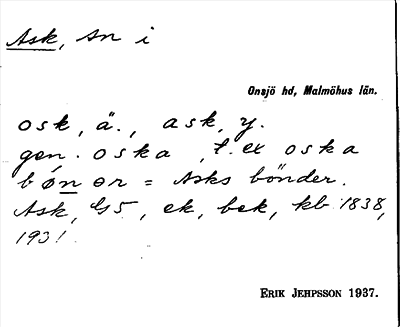 Ask, sn i
Onsjö hd, Malmöhus län.
osk, ä., ask, y.
gen. oska, t. ex oska
bønor = Asks bönder.
Ask, G5, ek, bek, kb 1838,
1931.
ERIK JEHPSSON 1937.